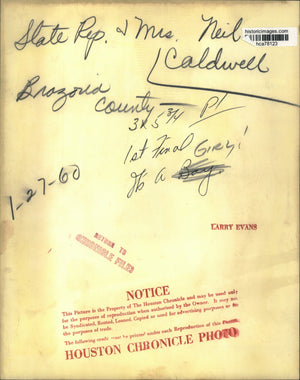 historicimages.com
hca78123
State Rep. & Mrs. Neil
Caldwell
Brazoria
County
3 x 5 3/4 Pl
1st Final
Girly!
It's a Boy
1-27-60
LARRY EVANS
RETURN TO
SCHEDULE FILES
NOTICE
This Picture is the Property of The Houston Chronicle and may be used only
for the purposes of reproduction when authorized by the Owner. It may not
be Syndicated, Rented, Loaned, Copied or used for advertising purposes or
the purposes of trade.
The following credit must be printed under each Reproduction of this
HOUSTON CHRONICLE PHOTO